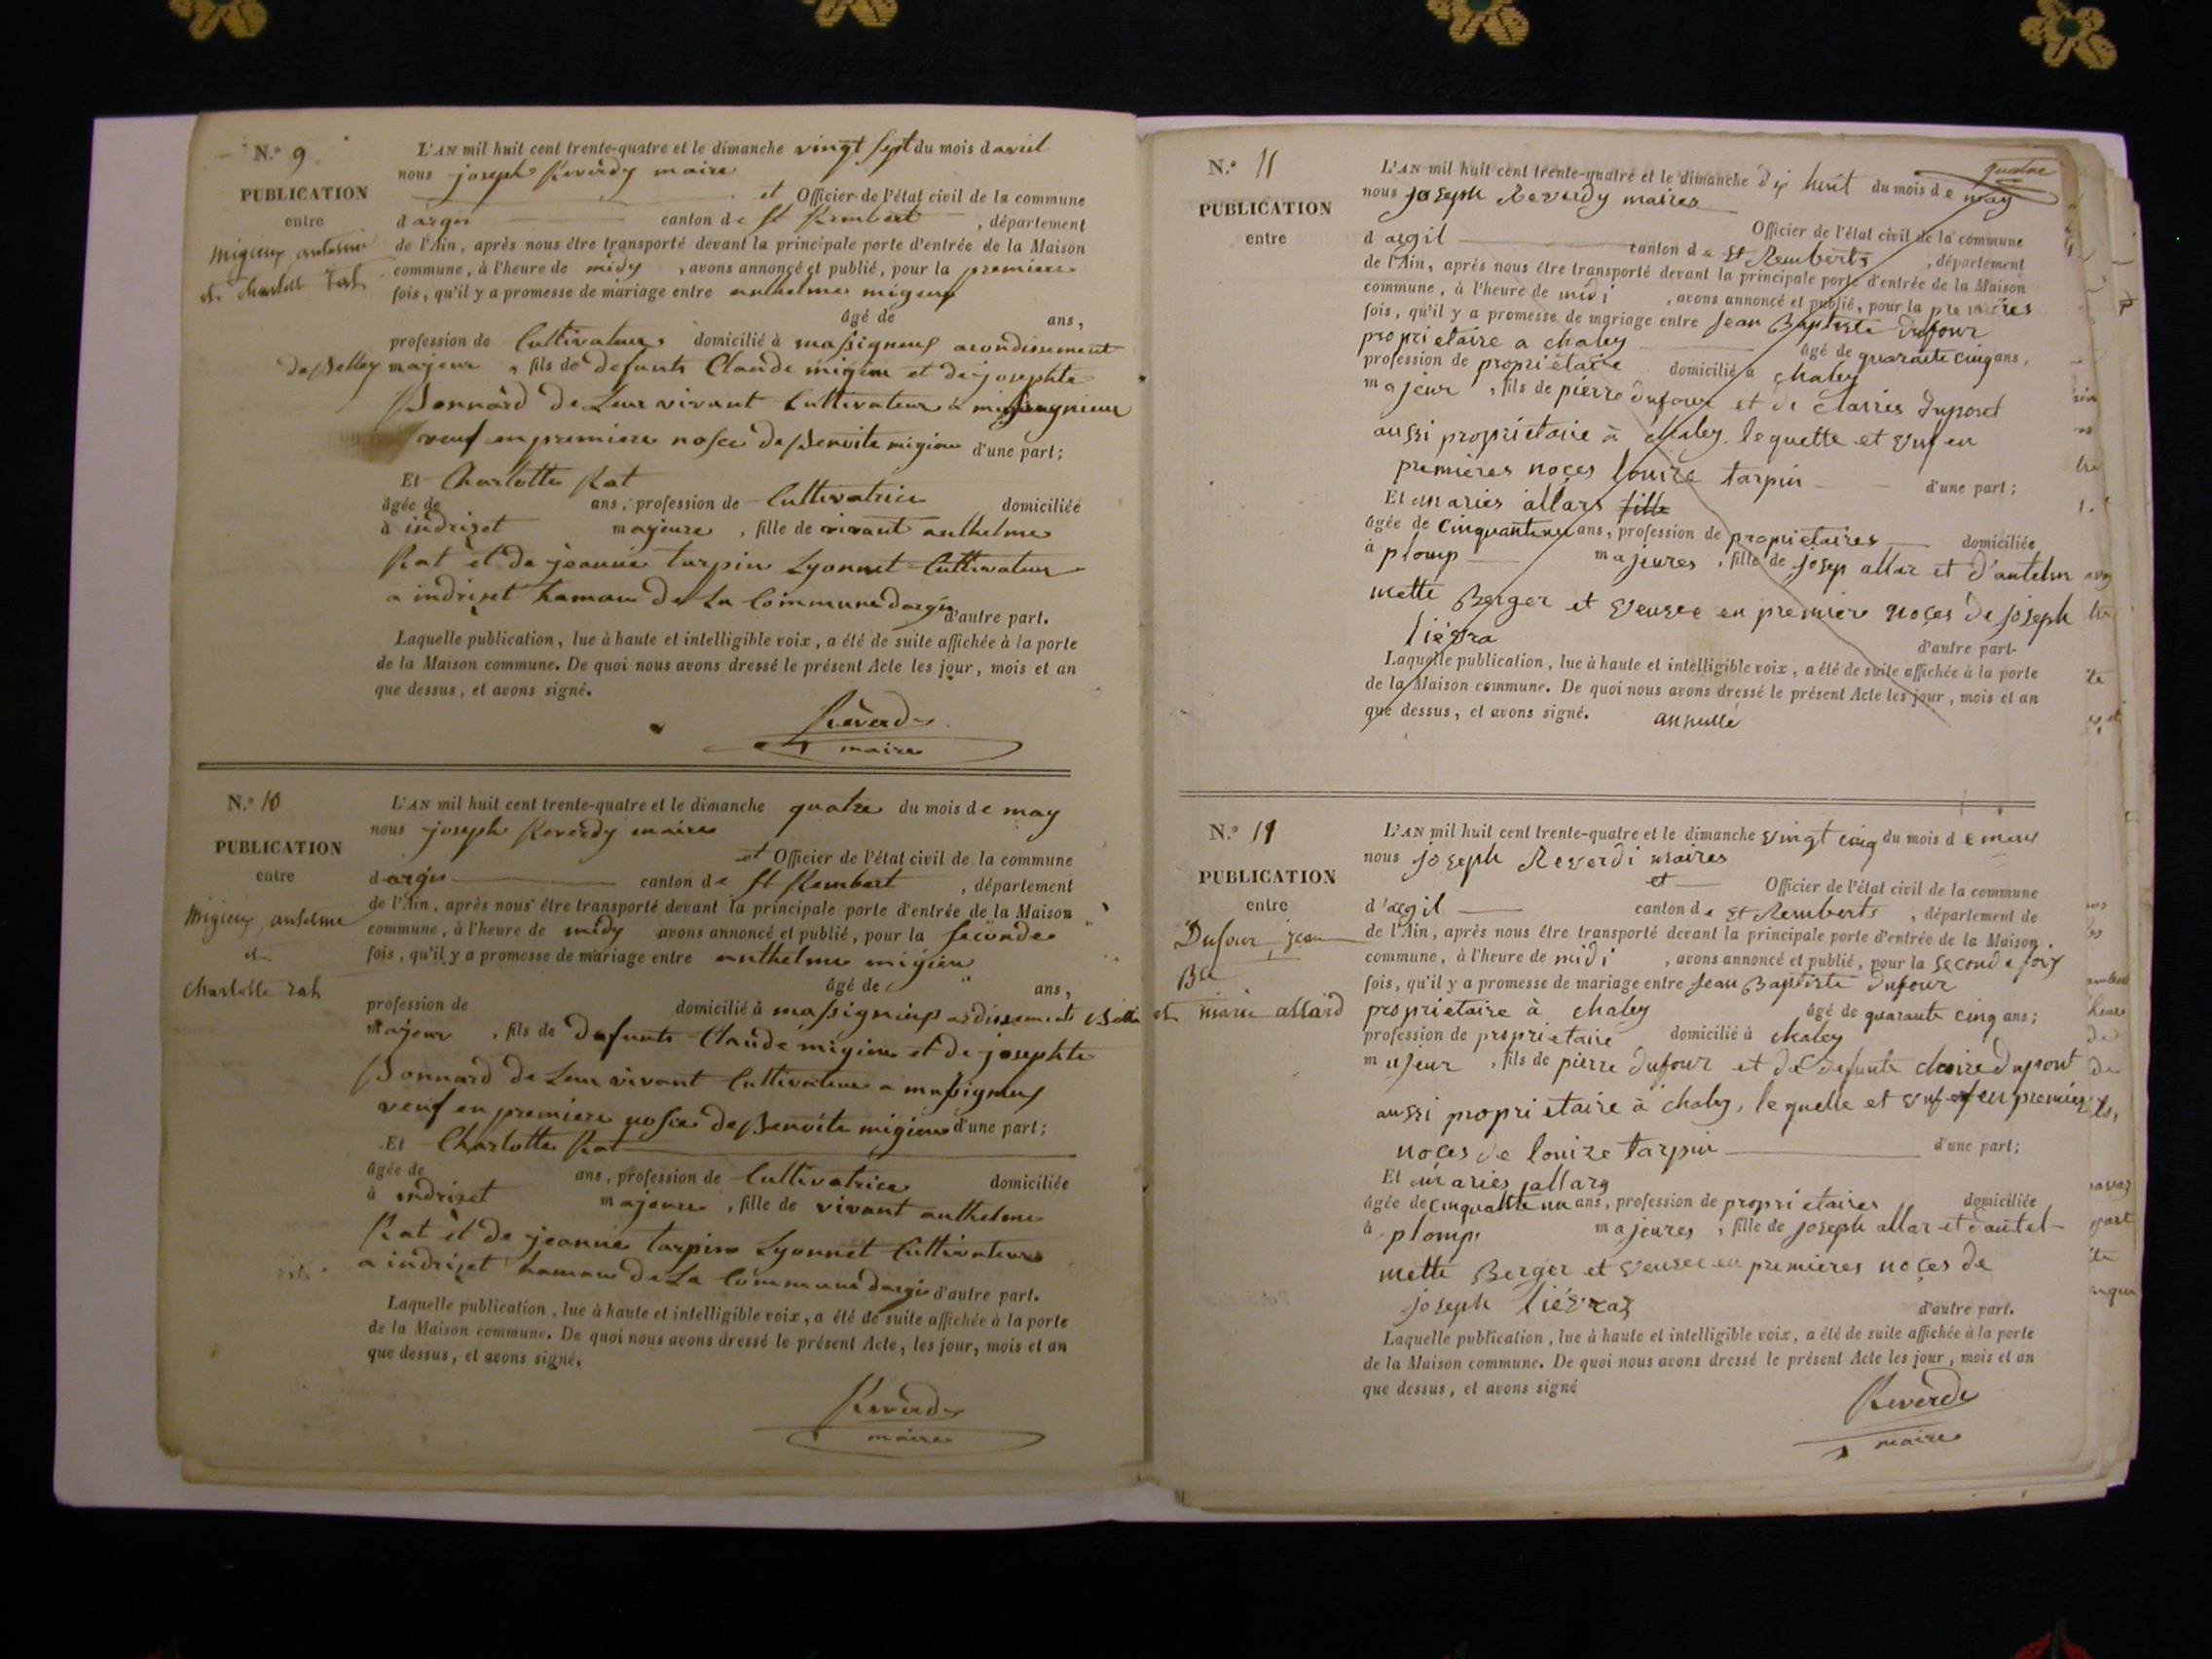 N.° 9
PUBLICATION
entre
migieux antelme
et Charlotte Rat
L'AN mil huit cent trente-quatre et le dimanche vingt sept du mois davril
nous joseph Reverdy maire
et Officier de l'état civil de la commune
dargis canton de St Rembert , département
de l'Ain, après nous être transporté devant la principale porte d'entrée de la Maison
commune, à l'heure de midy , avons annoncé et publié, pour la premiere
fois, qu'il y a promesse de mariage entre anthelme migieux
âgé de ans,
profession de Cultivateur domicilié à massignieux arondissement
de Belley majeur , fils de defunts Claude migieu et de josephte
Bonnard de Leur vivant Cultivateur a massignieux
veuf en premiere nosce de Benoite migieu d'une part;
Et Charlotte Rat
âgée de ans, profession de Cultivatrice domiciliée
à indrizet majeure , fille de vivant anthelme
Rat et de jeanne tarpin Lyonnet Cultivateur
a indrizet hamau De La Commune dargis d'autre part.
Laquelle publication, lue à haute et intelligible voix, a été de suite affichée à la porte
de la Maison commune. De quoi nous avons dressé le présent Acte les jour, mois et an
que dessus, et avons signé.
Reverdy
maire
N.° 10
PUBLICATION
entre
Migieux anselme
et
charlotte rat
L'AN mil huit cent trente-quatre et le dimanche quatre du mois de may
nous joseph Reverdy maire
et Officier de l'état civil de la commune
dargis canton de St Rembert , département
de l'Ain, après nous être transporté devant la principale porte d'entrée de la Maison
commune, à l'heure de midy avons annoncé et publié, pour la seconde
fois, qu'il y a promesse de mariage entre anthelme migieu
âgé de ans,
profession de domicilié à massignieux
majeur , fils de Defunts Claude migieu et de josephte
Bonnard de Leur vivant Cultivateur a massignieux
veuf en premiere nosce de Benoite migieu d'une part;
Et Charlotte Rat
âgée de ans, profession de Cultivatrice domiciliée
à indrizet majeure , fille de vivant anthelme
Rat et de jeanne tarpin Lyonnet Cultivateurs
a indrizet hamau De La Commune dargis d'autre part.
Laquelle publication, lue à haute et intelligible voix, a été de suite affichée à la porte
de la Maison commune. De quoi nous avons dressé le présent Acte, les jour, mois et an
que dessus, et avons signé.
Reverdy
maire
N.° 11
PUBLICATION
entre
quatre
L'AN mil huit cent trente-quatre et le dimanche dix huit du mois de may
nous joseph Reverdy maires
Officier de l'état civil de la commune
d argil canton de St Remberts , département
de l'Ain, après nous être transporté devant la principale porte d'entrée de la Maison
commune, à l'heure de midi , avons annoncé et publié, pour la premières
fois, qu'il y a promesse de mariage entre Jean Baptiste dufour
proprietaire a chaley âgé de quarante cinq ans,
profession de proprietaire domicilié à chaley
majeur , fils de pierre dufour et de clairies dupord
aussi proprietaire à chaley lequelle et veuf en
premières noçes louize tarpin d'une part;
Et maries allars fille
âgée de cinquante un ans, profession de proprietaires domiciliée
à plomp majeures , fille de josep allar et d'antelm
mette Berger et veusve en premier noçes de joseph
liévra
d'autre part.
Laquelle publication, lue à haute et intelligible voix, a été de suite affichée à la porte
de la Maison commune. De quoi nous avons dressé le présent Acte les jour, mois et an
que dessus, et avons signé. annullé
N.° 11
PUBLICATION
entre
Dufour, jean
Bte
et marie allard
L'AN mil huit cent trente-quatre et le dimanche vingt cinq du mois de may
nous joseph Reverdi maires
et Officier de l'état civil de la commune
d'argil canton de St Remberts , département de
de l'Ain, après nous être transporté devant la principale porte d'entrée de la Maison
commune, à l'heure de midi , avons annoncé et publié, pour la seconde fois
fois, qu'il y a promesse de mariage entre Jean Baptiste dufour
proprietaire à chaley âgé de quarante cinq ans;
profession de proprietaire domicilié à chaley
majeur , fils de pierre dufour et de defunte claire dupont
aussi proprietaire à chaley, lequelle et veuf en premier
noçes de louize tarpin d'une part;
Et maries allarg
âgée de cinquante un ans, profession de proprietaires domiciliée
à plomp majeures , fille de joseph allar et d'antel-
mette Berger et veusve en premieres noçes de
joseph liévraz
d'autre part.
Laquelle publication, lue à haute et intelligible voix, a été de suite affichée à la porte
de la Maison commune. De quoi nous avons dressé le présent Acte les jour, mois et an
que dessus, et avons signé
Reverdy
maire